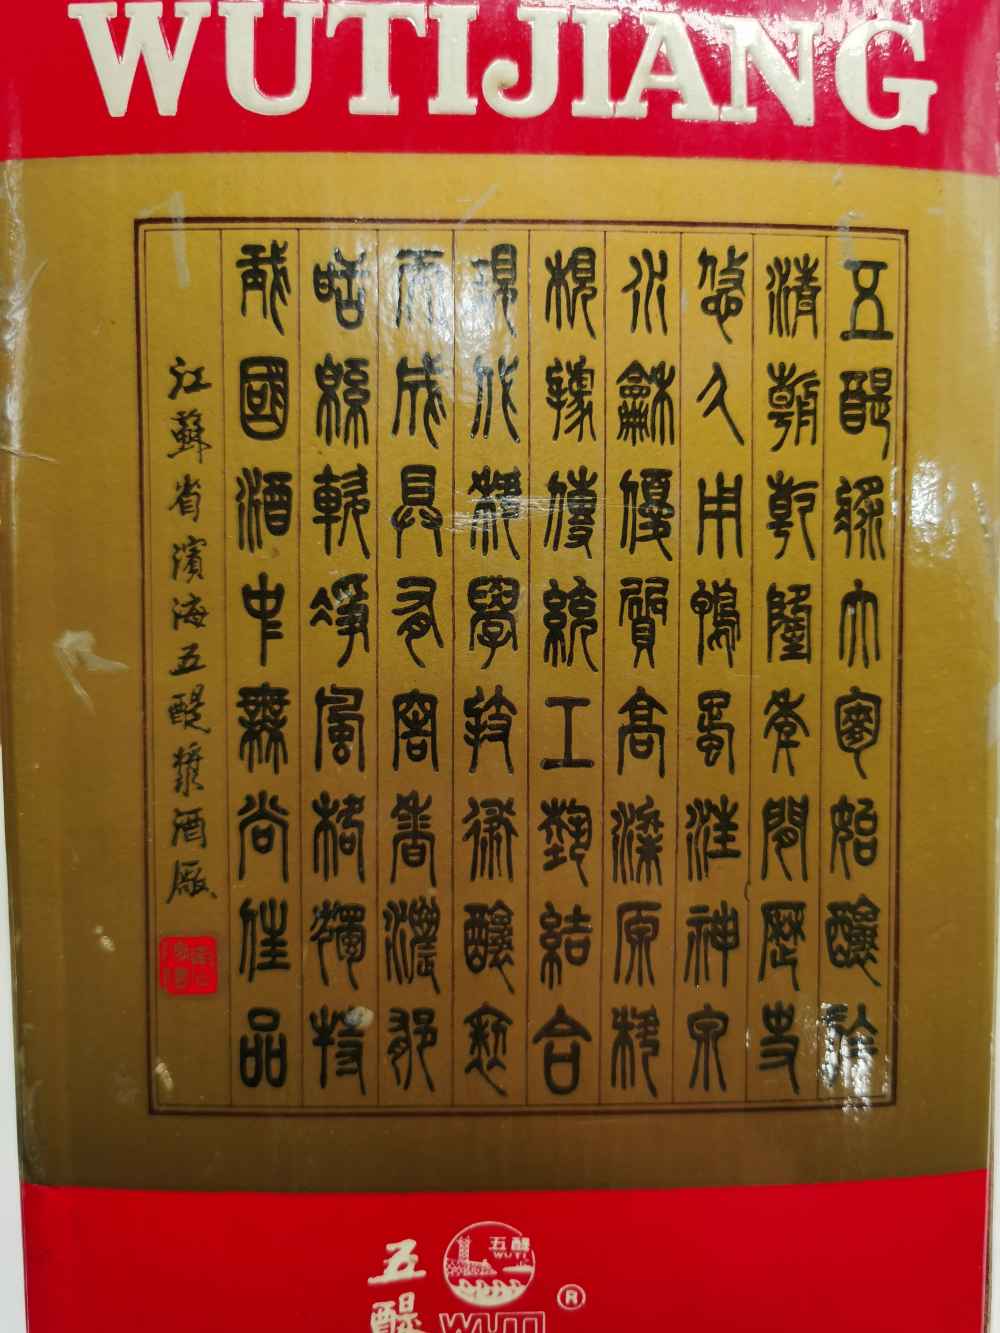 WUTIJIANG
五醍漿大麯始釀於
清朝乾隆年間歷史
悠久用鴨蛋洼神泉
水龢優質高粱原料
根據傳統工藝結合
現代科學技術釀
而成具有窖香濃郁
甜綿軟淨風格獨特
我國酒中無尚佳品
江蘇省濱海五醍漿酒廠
五醍
五醍
WUTI
WUTI
®